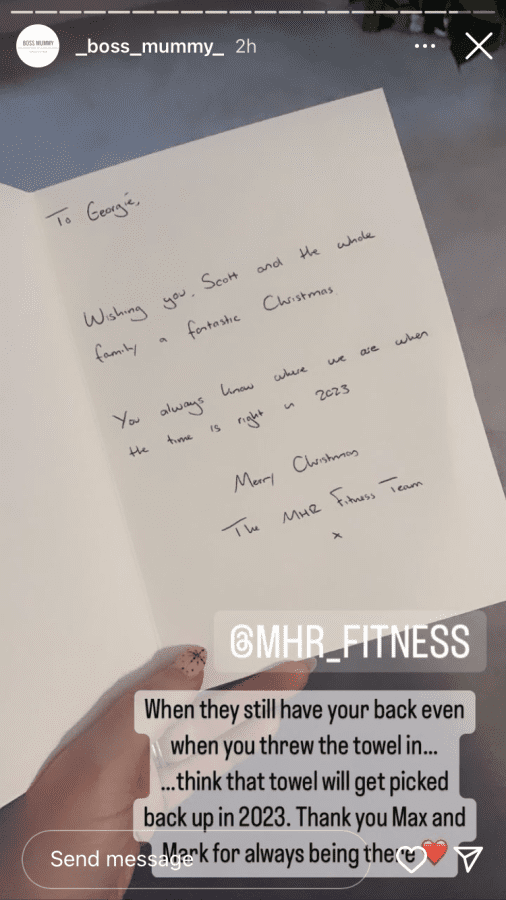 BOSS MUMMY
_boss_mummy_ 2h
To Georgie,
Wishing you, Scott and the whole
family a fantastic Christmas.
You always know where we are when
the time is right in 2023
Merry Christmas
The MHR Fitness Team
x
@MHR_FITNESS
When they still have your back even
when you threw the towel in...
...think that towel will get picked
back up in 2023. Thank you Max and
Mark for always being there❤️
Send message